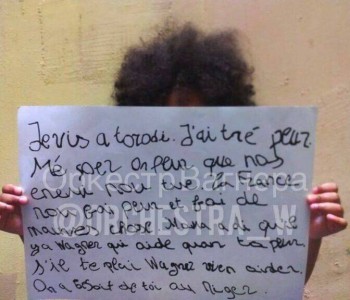 Je vis a torodi. J'ai tré peur.
Mé per on peur que nos
enemi nou tue la France
nou fai peur et fai de
mauves chose. Mama a di qu'il
ya Wagner qui aide quan ta peur
s'il te plai Wagner vien aider.
On a besoit de toi au Niger.
ОркестрВагнера
@ORCHESTRA_W